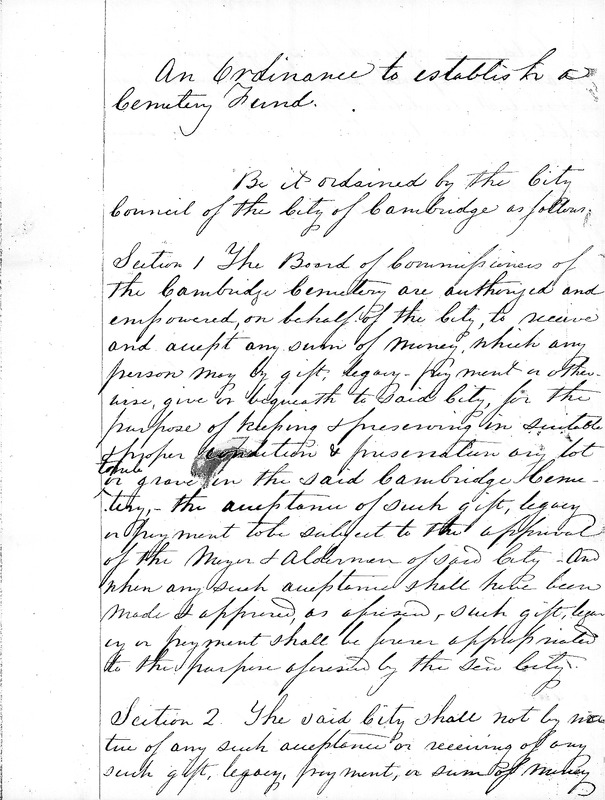 An Ordinance to establish a
Cemetery Fund.
Be it ordained by the City
Council of the City of Cambridge as follows.
Section 1 The Board of Commissioners of
the Cambridge Cemetery are authorized and
empowered, on behalf of the City, to receive
and accept any sum of money, which any
person may by gift, legacy - payment or other-
wise, give or bequeath to said City, for the
purpose of keeping & preserving in suitable
& proper condition & preservation any lot
tomb
or grave in the said Cambridge Ceme-
tery, - the acceptance of such gift, legacy
or payment to be subject to the approval
of the Mayor & Aldermen of said City - And
when any such acceptance shall have been
made & approved, as aforesaid, such gift, legac
cy or payment shall be forever appropriated
to the purpose aforesaid by the said City.
Section 2. The said City shall not by vir
tue of any such acceptance or receiving of any
such gift, legacy, payment, or sum of money